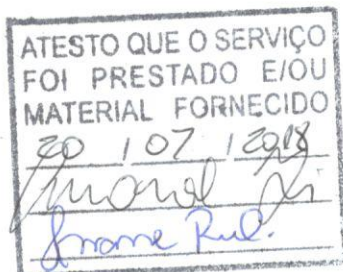 ATESTO QUE O SERVIÇO
FOI PRESTADO E/OU
MATERIAL FORNECIDO
20 / 07 / 2018